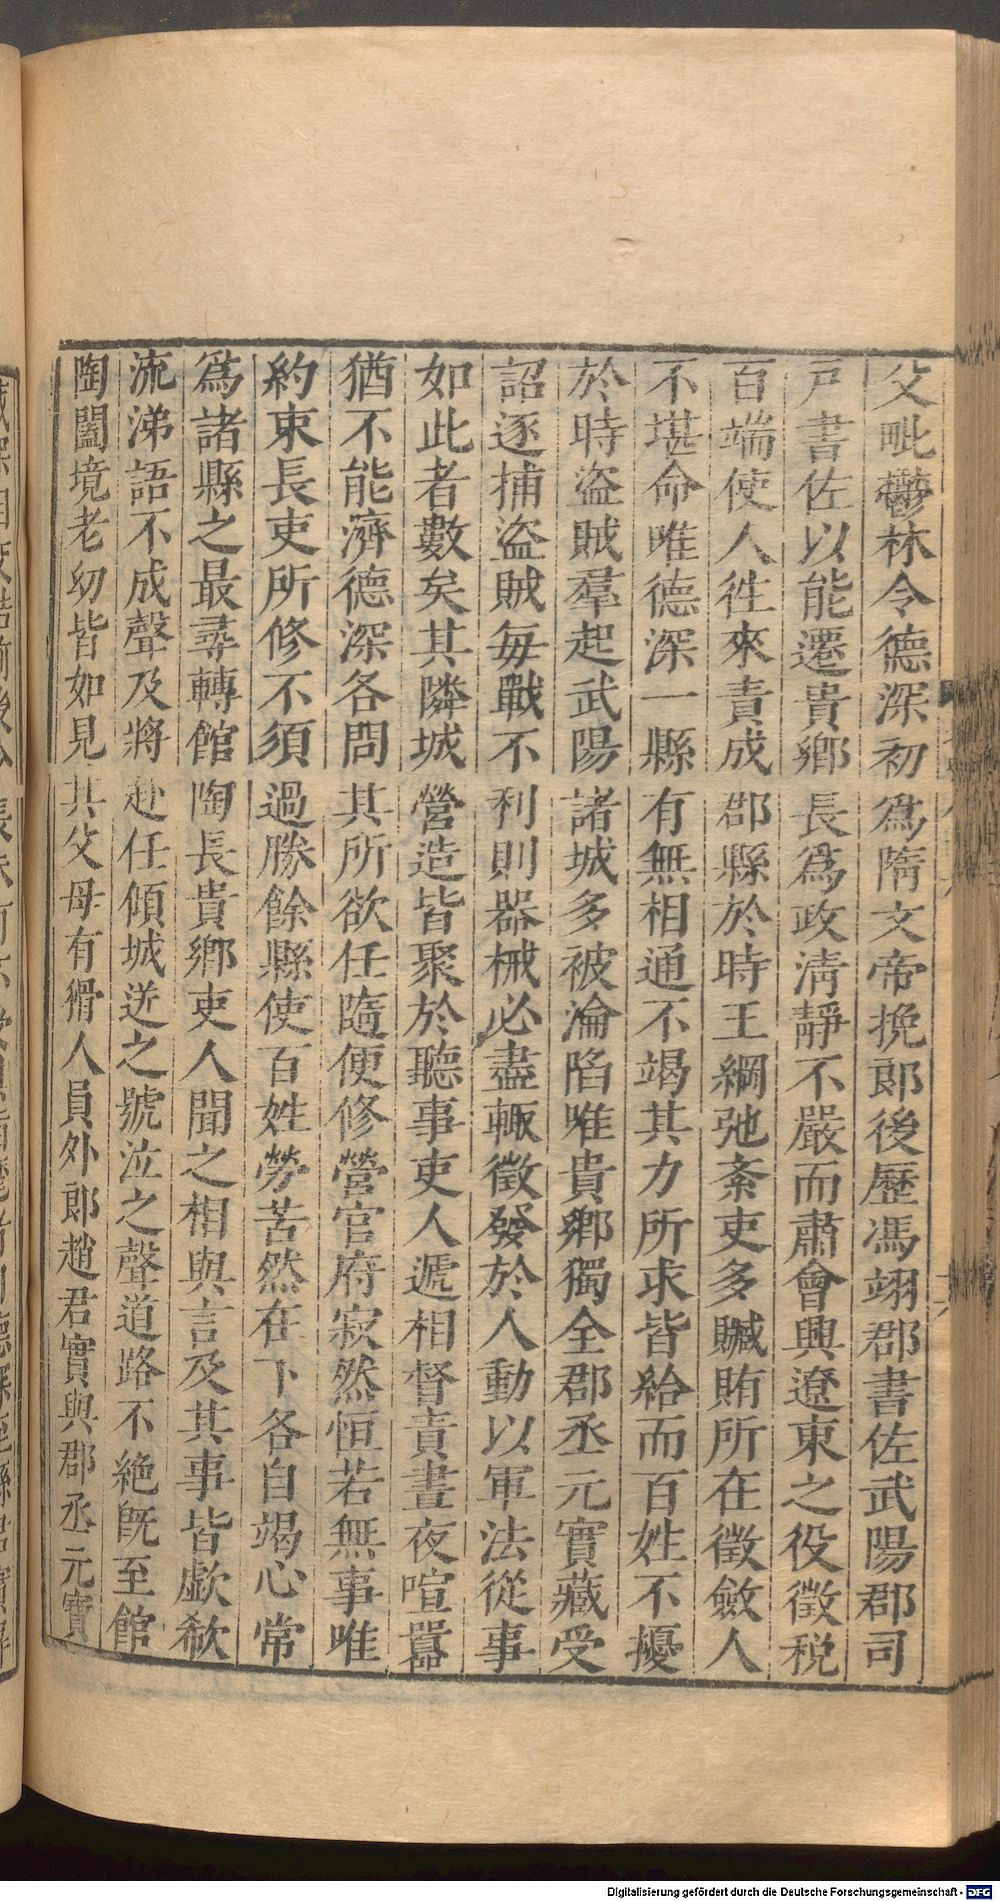 父毗鬱林令德深初爲隋文帝挽郎後歷馮翊郡書佐武陽郡司
戸書佐以能遷貴鄉長爲政淸靜不嚴而肅會興遼東之役徵税
百端使人徃來責成郡縣於時王綱弛紊吏多贓賄所在徵斂人
不堪命唯德深一縣有無相通不竭其力所求皆給而百姓不擾
於時盜賊羣起武陽諸城多被淪陷唯貴鄉獨全郡丞元寳藏受
詔逐捕盜賊每戰不利則器械必盡輙徵發於人動以軍法從事
如此者數矣其隣城營造皆聚於聽事吏人遞相督責晝夜喧囂
猶不能濟德深各問其所欲任隨便修營官府寂然恒若無事唯
約束長吏所修不須過勝餘縣使百姓勞苦然在下各自竭心常
爲諸縣之最尋轉館陶長貴鄉吏人聞之相與言及其事皆歔欷
流涕語不成聲及將赴任傾城送之號泣之聲道路不絶旣至館
陶闔境老幼皆如見其父母有猾人員外郎趙君實與郡丞元寳
Digitalisierung gefördert durch die Deutsche Forschungsgemeinschaft - DFG